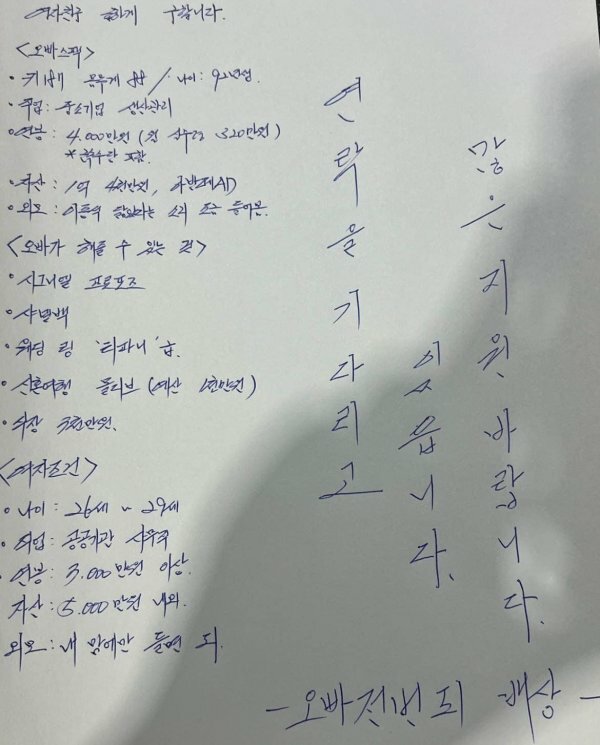 여자친구 구합니다.
<오바스펙>
· 키 몸무게 / 나이: 92년생.
· 직업: 중소기업 생산관리
· 연봉: 4.000만원 (월 실수령 320만원)
* 특수란 포함.
· 자산: 1억 4천만원, 아반떼AD
· 외모: 이동욱 닮았다는 소리 조금 들어봄.
<오바가 해줄 수 있는 것>
· 시그니엘 프로포즈
· 샤넬백
· 웨딩 링 '티파니' 급.
· 신혼여행 몰디브 (예산 1천만원)
· 식장 3천만원.
<여자조건>
· 나이: 26세 ~ 29세
· 직업: 공공기관 사무직
· 연봉: 3.000만원 이상.
자산: 5.000만원 내외.
외모: 내 맘에만 들면 되.
많은 지원 바랍니다.
연락을 기다리고
있읍니다.
- 오빠 전번 되 배상 -